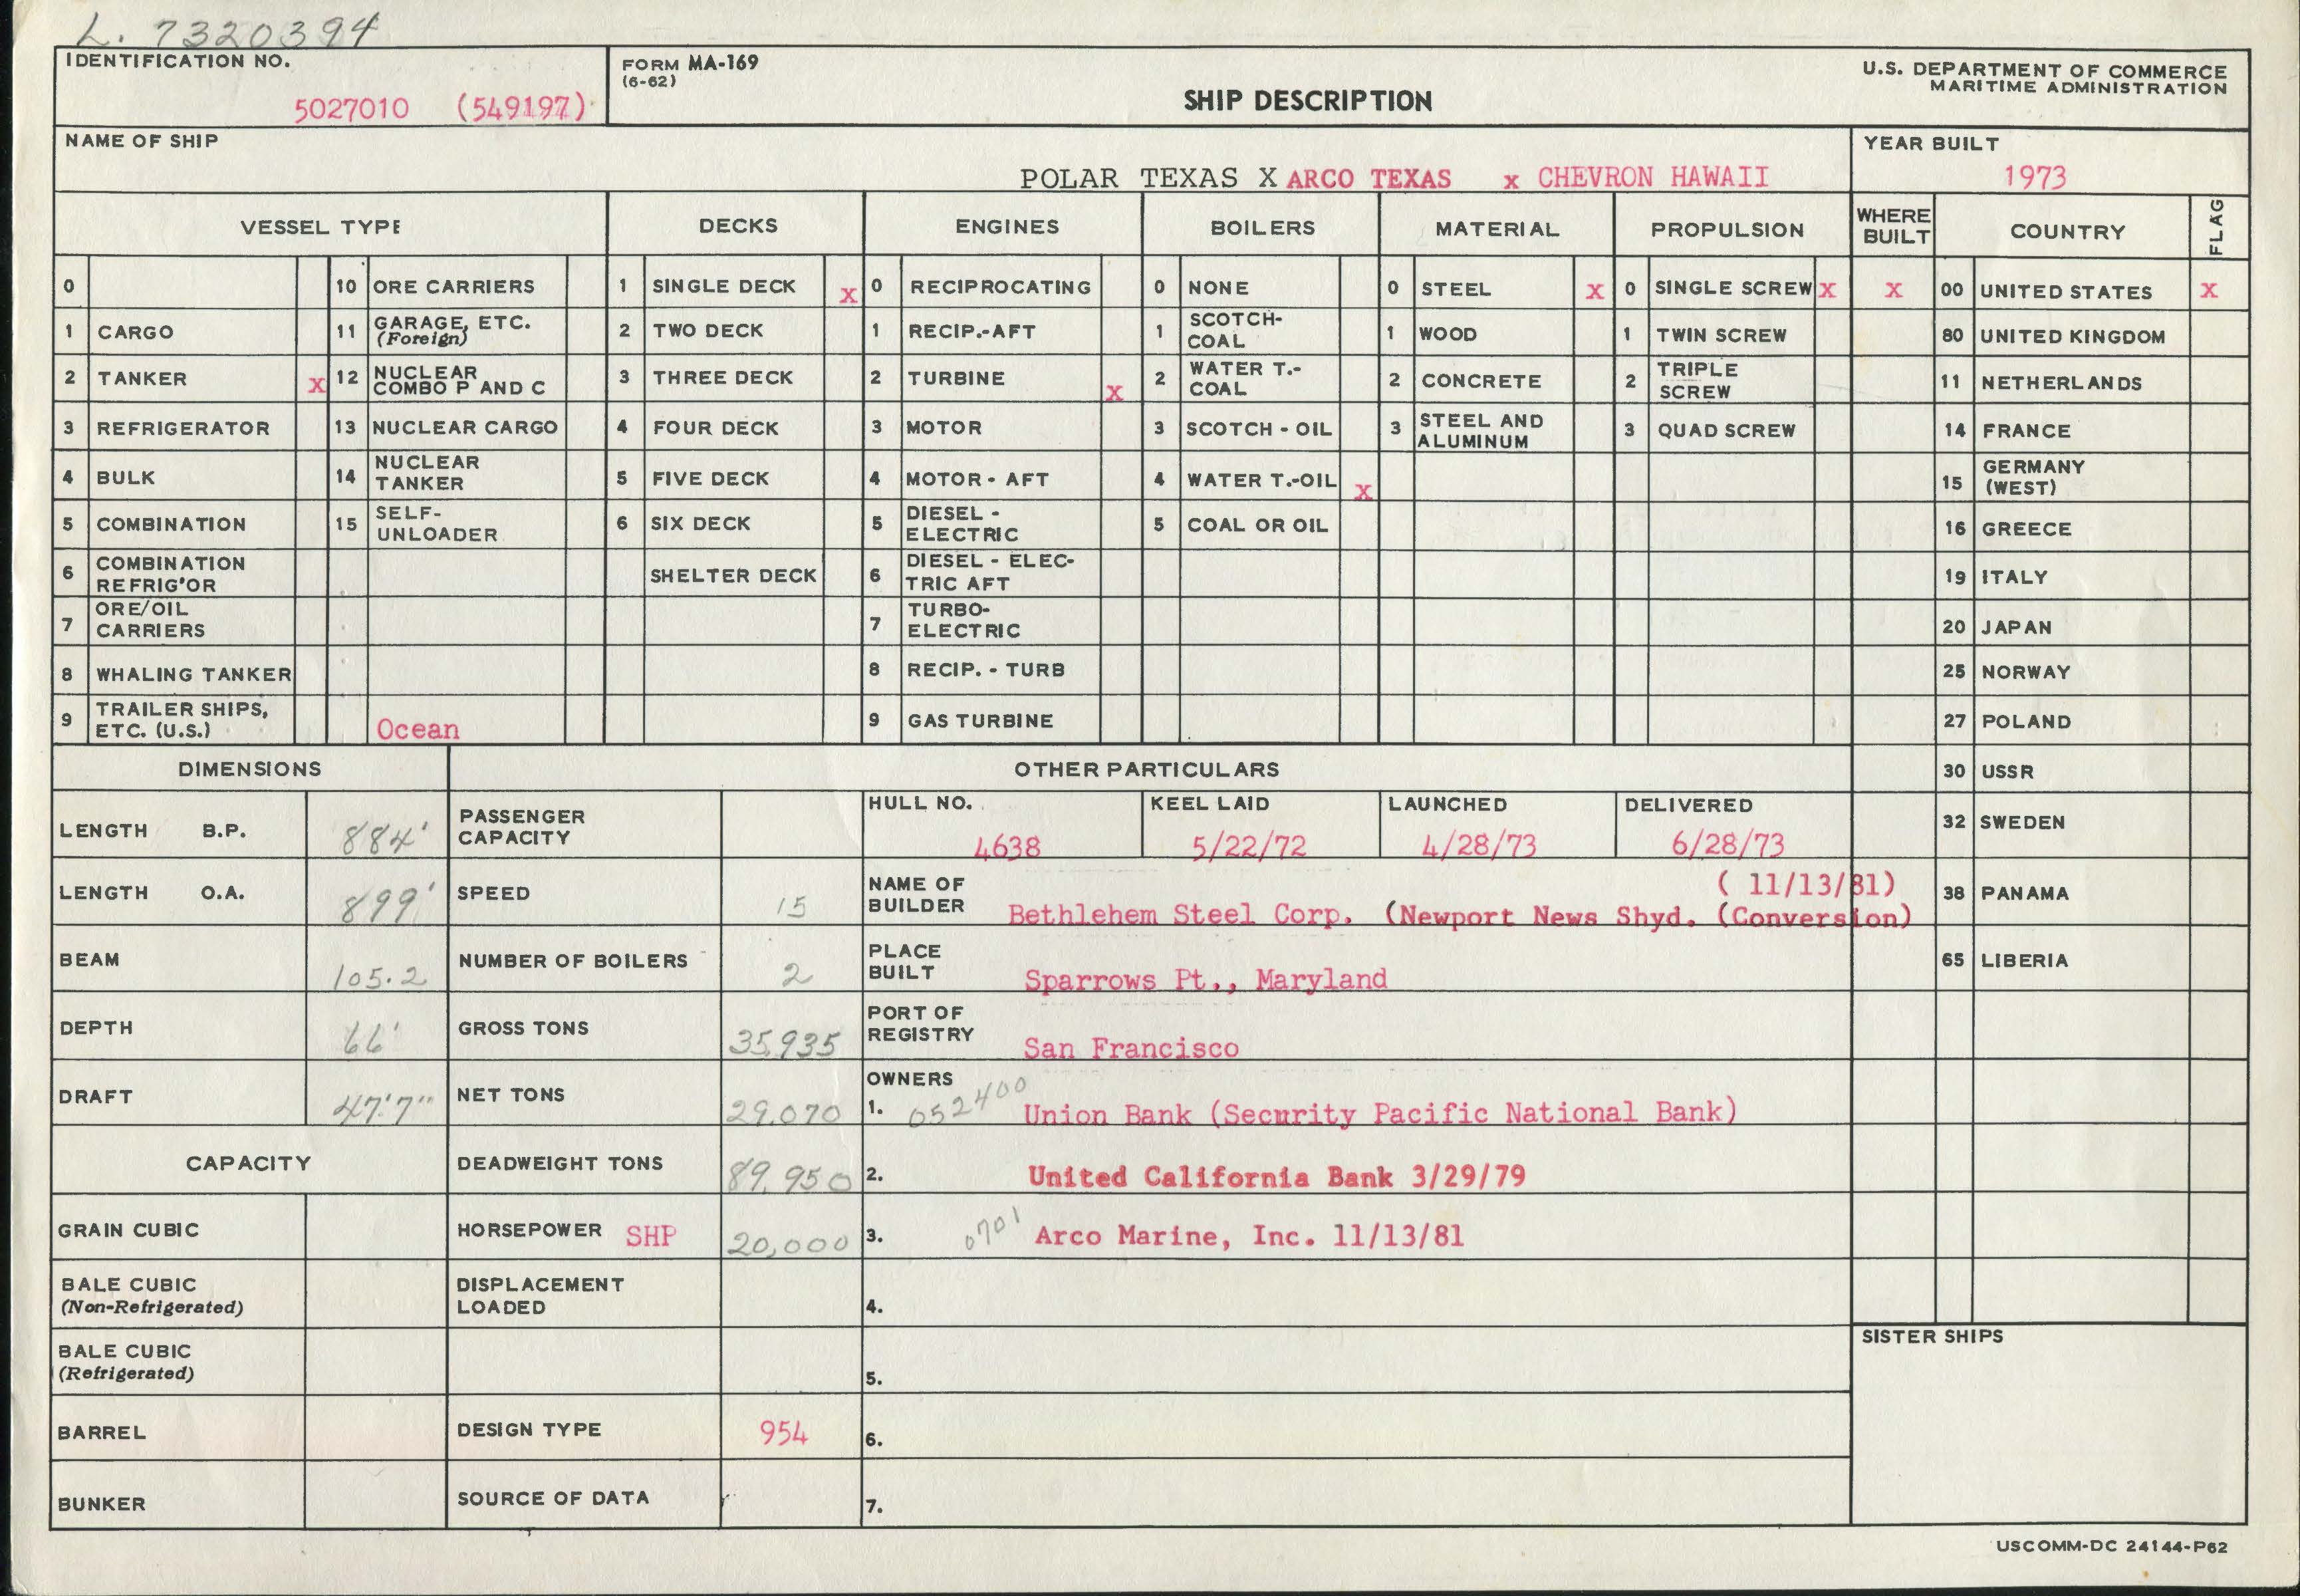 L. 7320394
IDENTIFICATION NO.
5027010 (549197)
FORM MA-169
(6-62)
SHIP DESCRIPTION
U.S. DEPARTMENT OF COMMERCE
MARITIME ADMINISTRATION
NAME OF SHIP
POLAR TEXAS X ARCO TEXAS x CHEVRON HAWAII
YEAR BUILT
1973
VESSEL TYPE DECKS ENGINES BOILERS MATERIAL PROPULSION WHERE BUILT COUNTRY FLAG
0 10 ORE CARRIERS 1 SINGLE DECK x 0 RECIPROCATING 0 NONE 0 STEEL x 0 SINGLE SCREW x x 00 UNITED STATES x
1 CARGO 11 GARAGE, ETC. (Foreign) 2 TWO DECK 1 RECIP.-AFT 1 SCOTCH-COAL 1 WOOD 1 TWIN SCREW 80 UNITED KINGDOM
2 TANKER x 12 NUCLEAR COMBO P AND C 3 THREE DECK 2 TURBINE x 2 WATER T.-COAL 2 CONCRETE 2 TRIPLE SCREW 11 NETHERLANDS
3 REFRIGERATOR 13 NUCLEAR CARGO 4 FOUR DECK 3 MOTOR 3 SCOTCH - OIL 3 STEEL AND ALUMINUM 3 QUAD SCREW 14 FRANCE
4 BULK 14 NUCLEAR TANKER 5 FIVE DECK 4 MOTOR - AFT 4 WATER T.-OIL x 15 GERMANY (WEST)
5 COMBINATION 15 SELF-UNLOADER 6 SIX DECK 5 DIESEL - ELECTRIC 5 COAL OR OIL 16 GREECE
6 COMBINATION REFRIG'OR SHELTER DECK 6 DIESEL - ELECTRIC AFT 19 ITALY
7 ORE/OIL CARRIERS 7 TURBO-ELECTRIC 20 JAPAN
8 WHALING TANKER 8 RECIP. - TURB 25 NORWAY
9 TRAILER SHIPS, ETC. (U.S.) Ocean 9 GAS TURBINE 27 POLAND
DIMENSIONS OTHER PARTICULARS 30 USSR
LENGTH B.P. 884' PASSENGER CAPACITY HULL NO. 4638 KEEL LAID 5/22/72 LAUNCHED 4/28/73 DELIVERED 6/28/73 32 SWEDEN
LENGTH O.A. 899' SPEED 15 NAME OF BUILDER Bethlehem Steel Corp. (Newport News Shyd. (Conversion) ( 11/13/81) 38 PANAMA
BEAM 105.2 NUMBER OF BOILERS 2 PLACE BUILT Sparrows Pt., Maryland 65 LIBERIA
DEPTH 66' GROSS TONS 35,935 PORT OF REGISTRY San Francisco
DRAFT 47'7" NET TONS 29,070 OWNERS 1. 052400 Union Bank (Security Pacific National Bank)
CAPACITY DEADWEIGHT TONS 89,950 2. United California Bank 3/29/79
GRAIN CUBIC HORSEPOWER SHP 20,000 3. 0701 Arco Marine, Inc. 11/13/81
BALE CUBIC (Non-Refrigerated) DISPLACEMENT LOADED 4.
BALE CUBIC (Refrigerated) 5. SISTER SHIPS
BARREL DESIGN TYPE 954 6.
BUNKER SOURCE OF DATA 7.
USCOMM-DC 24144-P62